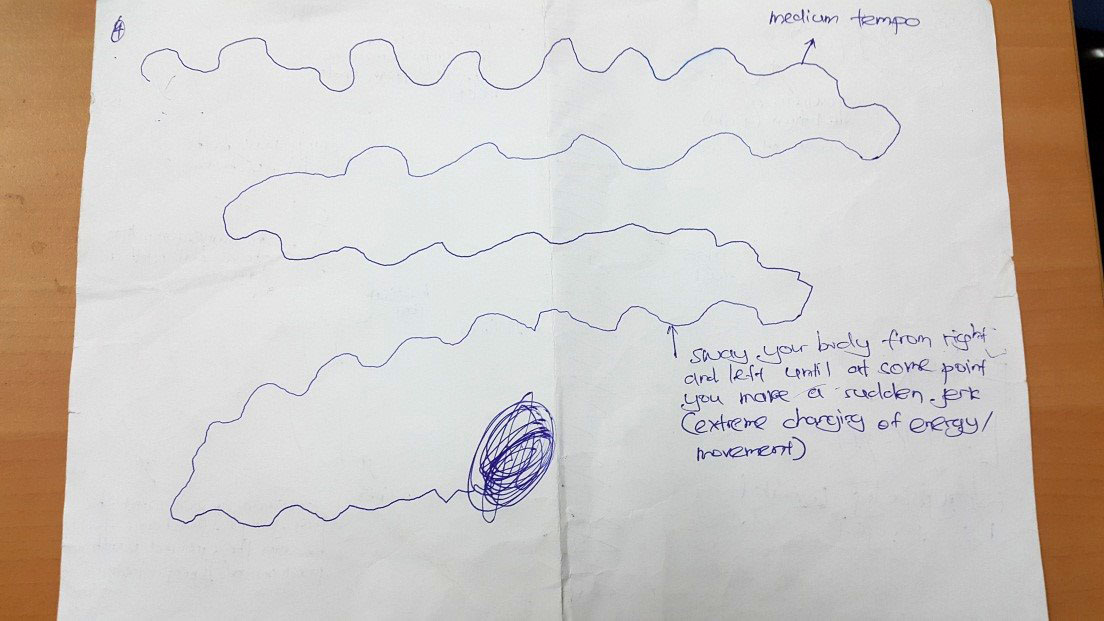 medium tempo
sway your body from right
and left until at some point
you make a sudden jerk
(extreme changing of energy/
movement)